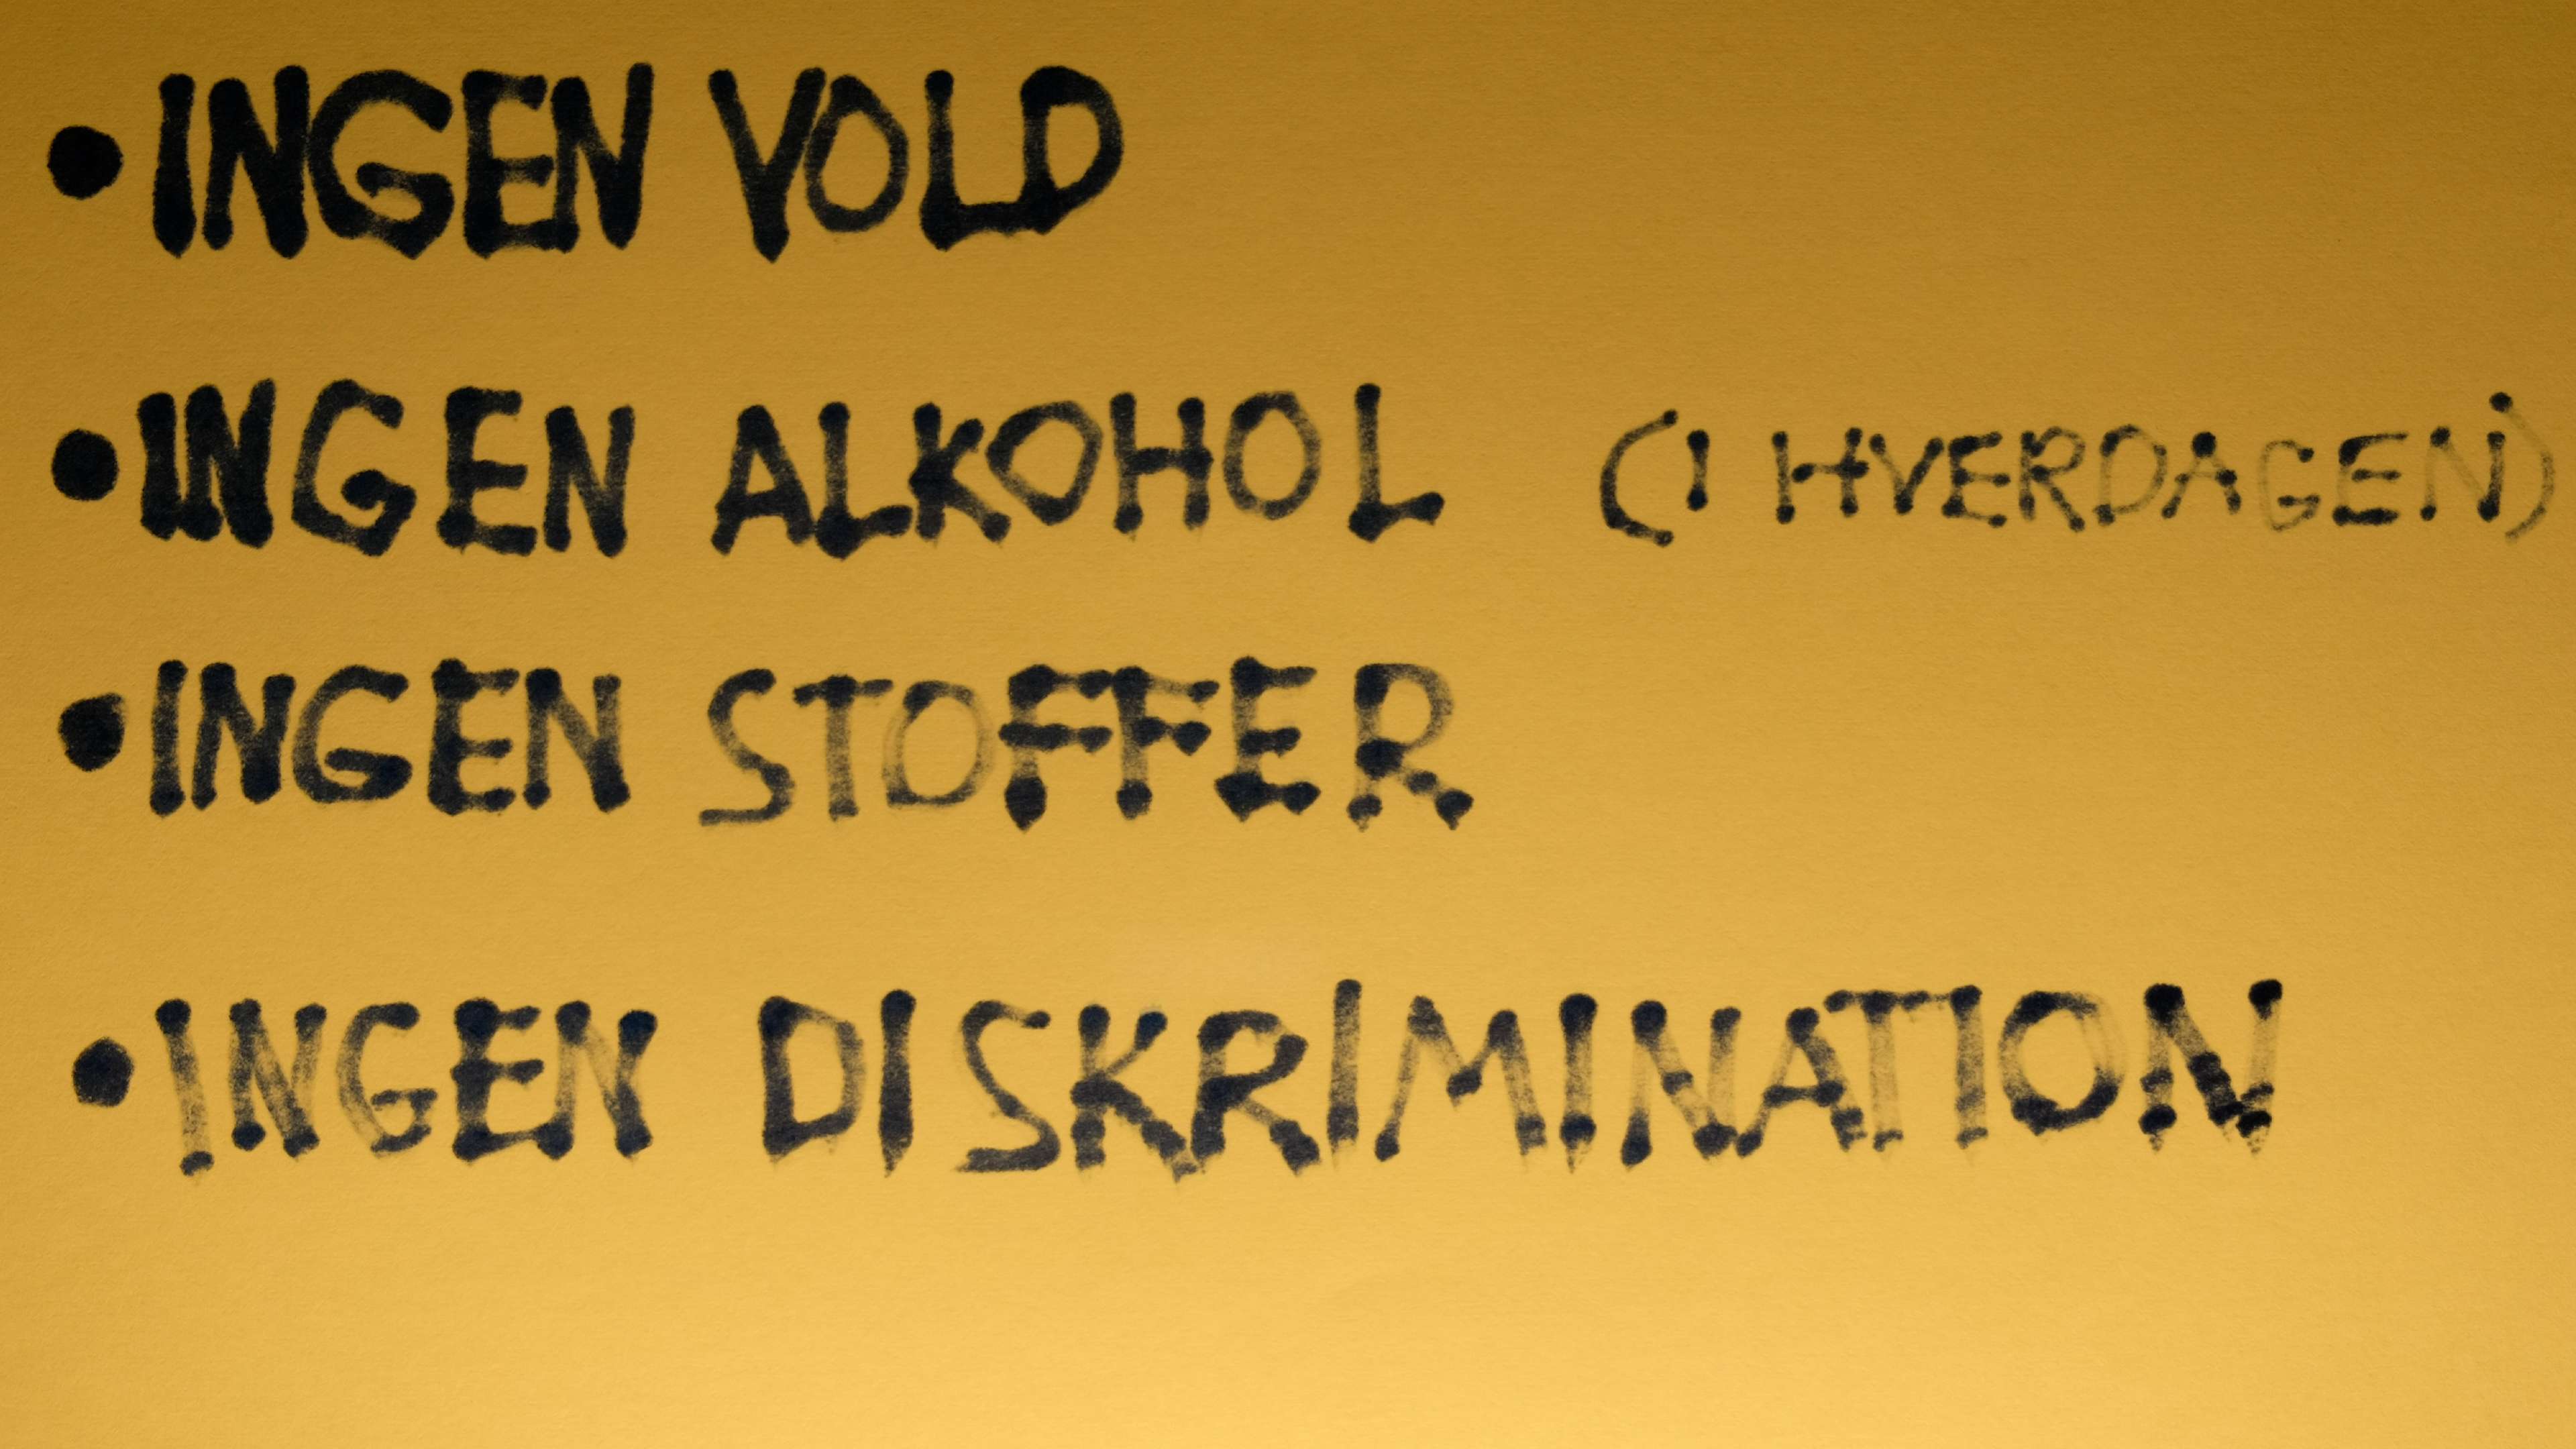 • INGEN VOLD
• INGEN ALKOHOL (I HVERDAGEN)
• INGEN STOFFER
• INGEN DISKRIMINATION